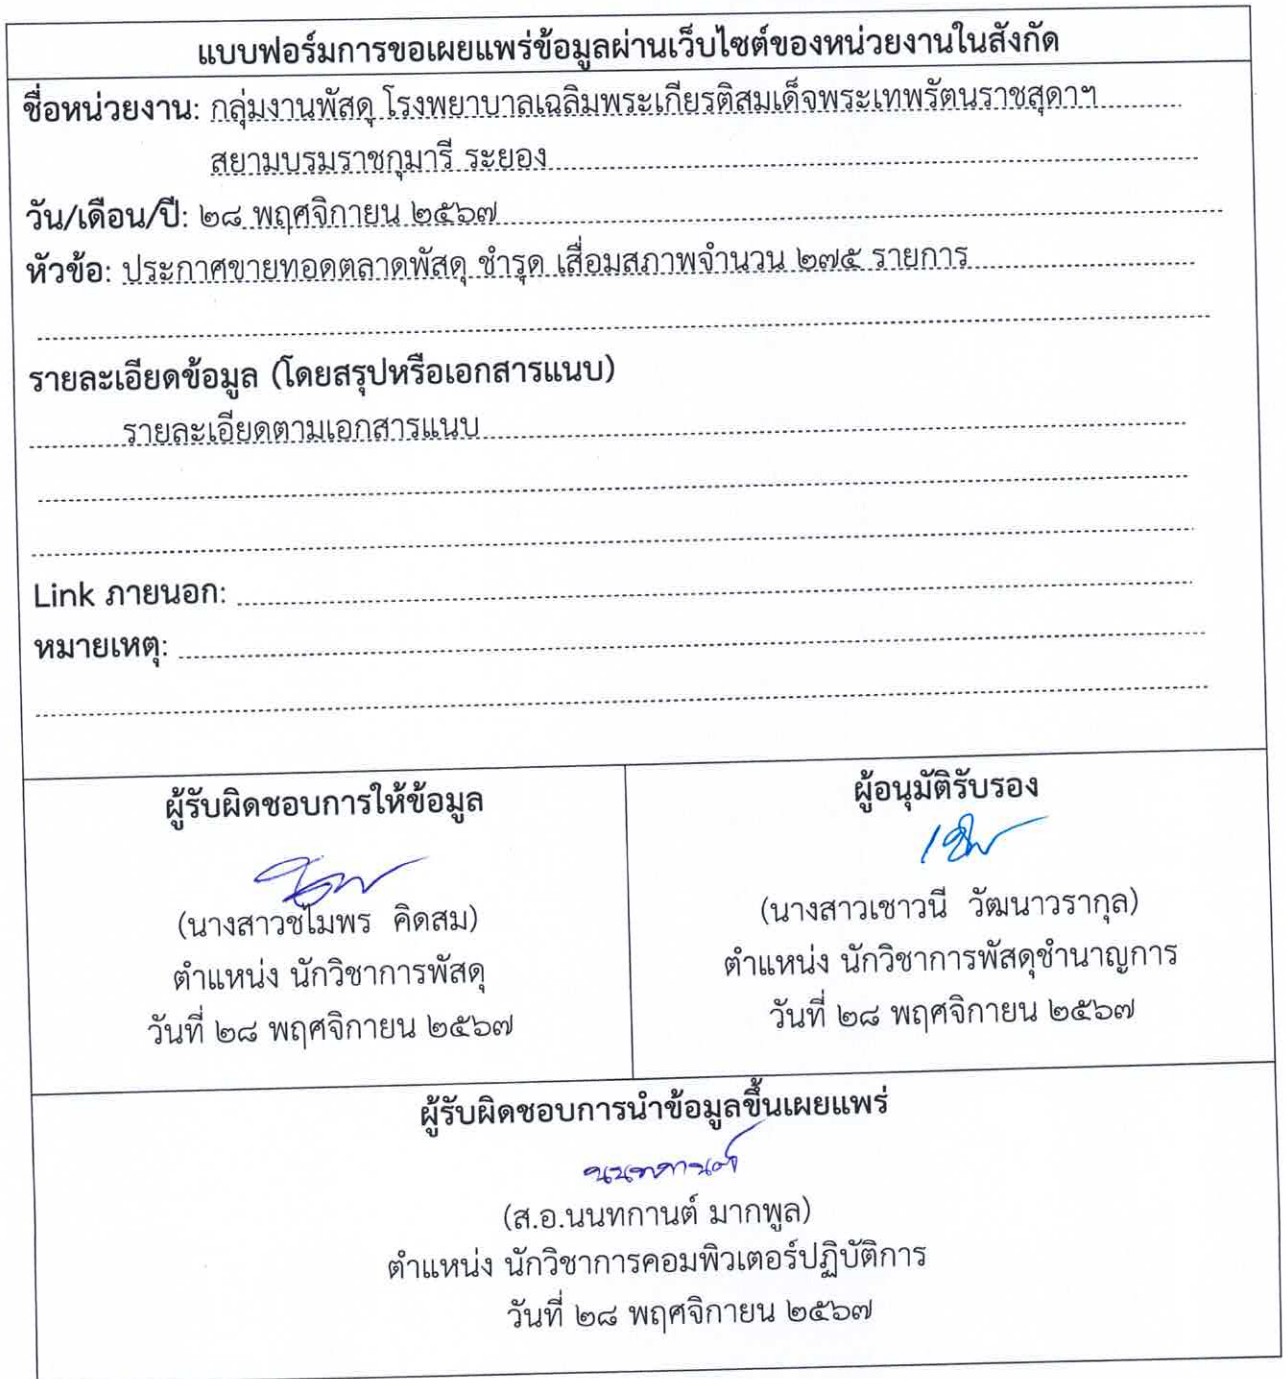 แบบฟอร์มการขอเผยแพร่ข้อมูลผ่านเว็บไซต์ของหน่วยงานในสังกัด
ชื่อหน่วยงาน: กลุ่มงานพัสดุ โรงพยาบาลเฉลิมพระเกียรติสมเด็จพระเทพรัตนราชสุดาฯ
สยามบรมราชกุมารี ระยอง
วัน/เดือน/ปี: ๒๘ พฤศจิกายน ๒๕๖๗
หัวข้อ: ประกาศขายทอดตลาดพัสดุ ชำรุด เสื่อมสภาพจำนวน ๒๗๕ รายการ
รายละเอียดข้อมูล (โดยสรุปหรือเอกสารแนบ)
รายละเอียดตามเอกสารแนบ
Link ภายนอก:
หมายเหตุ:
ผู้รับผิดชอบการให้ข้อมูล
(นางสาวชไมพร คิดสม)
ตำแหน่ง นักวิชาการพัสดุ
วันที่ ๒๘ พฤศจิกายน ๒๕๖๗
ผู้อนุมัติรับรอง
(นางสาวเชาวนี วัฒนาวรากุล)
ตำแหน่ง นักวิชาการพัสดุชำนาญการ
วันที่ ๒๘ พฤศจิกายน ๒๕๖๗
ผู้รับผิดชอบการนำข้อมูลขึ้นเผยแพร่
นนทกานต์
(ส.อ.นนทกานต์ มากพูล)
ตำแหน่ง นักวิชาการคอมพิวเตอร์ปฏิบัติการ
วันที่ ๒๘ พฤศจิกายน ๒๕๖๗